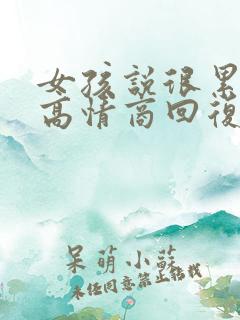 女孩説很累
高情商回復
呆萌小蘇
未经同意禁止转载